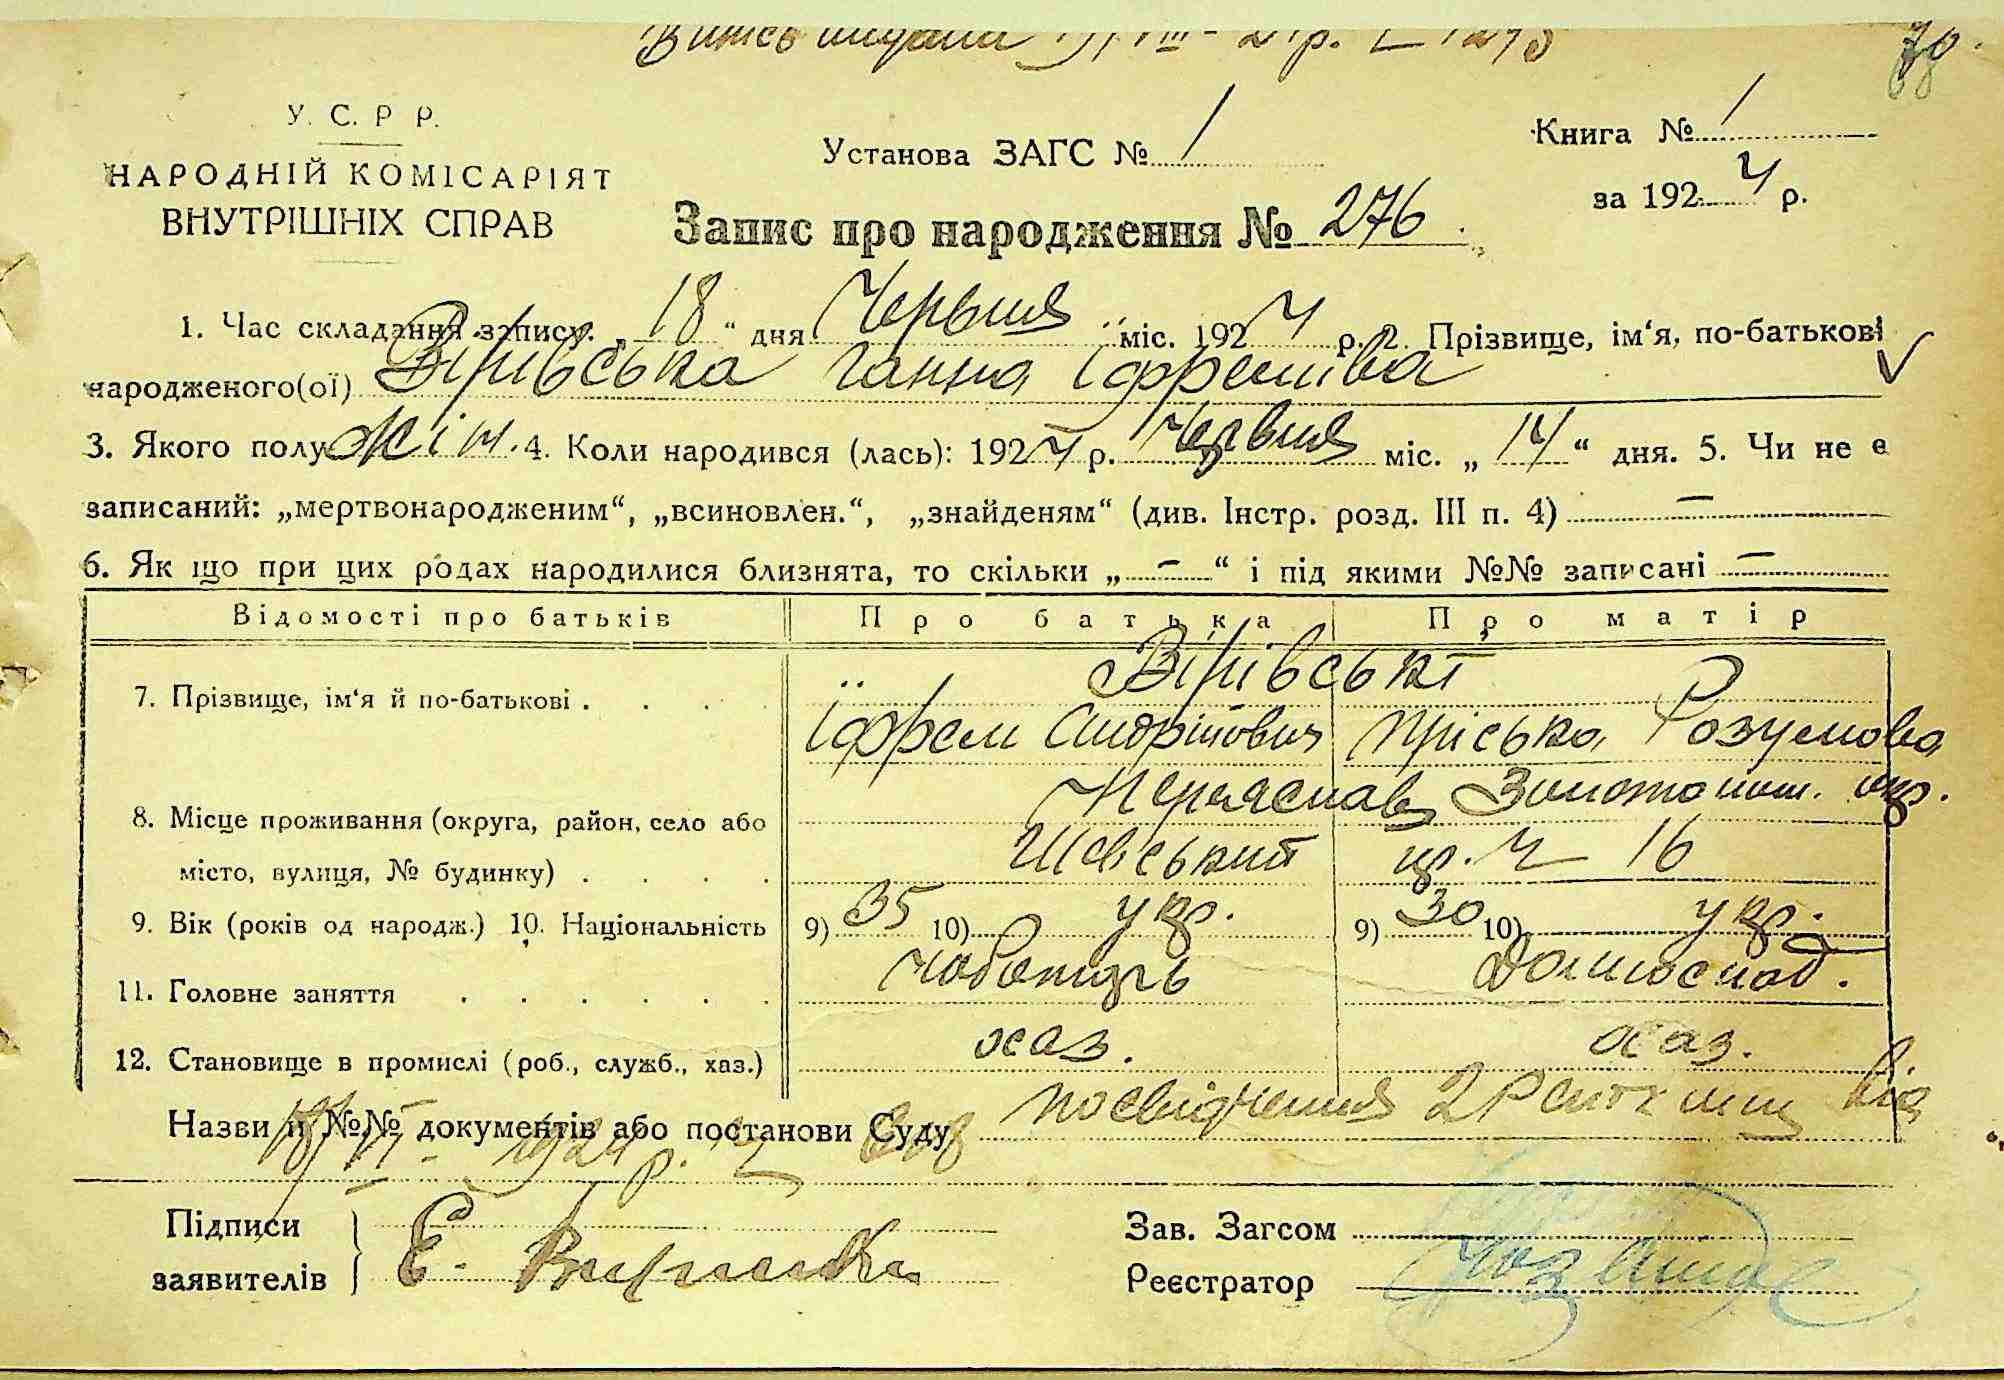 Витяг видана VIII - 24 р. 1293
70
У. С. Р Р.
НАРОДНІЙ КОМІСАРІЯТ
ВНУТРІШНІХ СПРАВ
Установа ЗАГС № 1
Книга № 1
за 1924 р.
Запис про народження № 276.
1. Час складання запису. „18“ дня Червня міс. 1924 р. 2. Прізвище, ім‘я, по-батькові
народженого(ої) Вірівська Ганна Їфремівa
3. Якого полу жін. 4. Коли народився (лась): 1924 р. Червня міс. „14“ дня. 5. Чи не є
записаний: „мертвонародженим“, „всиновлен.“, „знайденям“ (див. Інстр. розд. III п. 4) —
6. Як що при цих родах народилися близнята, то скільки „—“ і під якими №№ записані —
Відомості про батьків Про батька Про матір
Вірівські
7. Прізвище, ім‘я й по-батькові . . . .
Їфрем Пріська Розумова
Переяслав Золотонош. окр.
8. Місце проживання (округа, район, село або
місто, вулиця, № будинку) . . . .
ч 16
9. Вік (років од народж.) 10. Національність 9) 35 10) укр. 9) 30 10) укр.
11. Головне заняття . . . . . . Чоботарь Домогоспод.
12. Становище в промислі (роб., служб., хаз.) хаз. хаз.
Назви й №№ документів або постанови Суду посвідчення 2 Р від
18/VI - 1924 р. 808
Підписи
заявителів
Е.
Зав. Загсом
Реєстратор